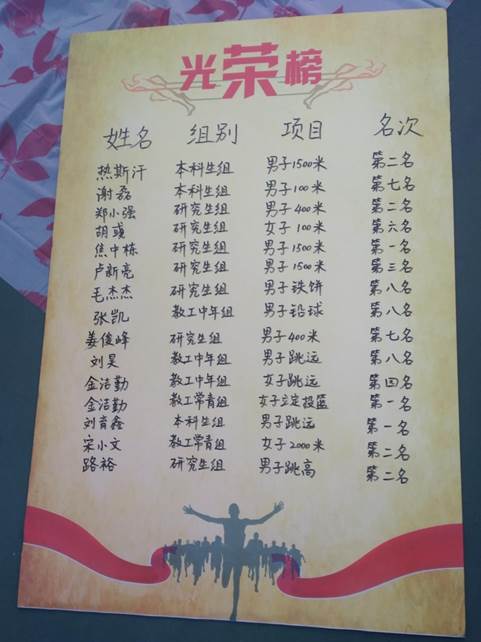 光荣榜
姓名 组别 项目 名次
热斯汗 本科生组 男子1500米 第二名
谢磊 本科生组 男子100米 第七名
郑小强 研究生组 男子400米 第二名
胡彧 研究生组 女子100米 第六名
焦中栋 研究生组 男子1500米 第一名
卢新亮 研究生组 男子1500米 第三名
毛杰杰 研究生组 男子铁饼 第八名
张凯 教工中年组 男子铅球 第八名
姜俊峰 研究生组 男子400米 第七名
刘昊 教工中年组 男子跳远 第八名
金洁勤 教工中年组 女子跳远 第四名
金洁勤 教工常青组 女子立定投篮 第一名
刘育鑫 本科生组 男子跳远 第一名
宋小文 教工常青组 女子2000米 第二名
路裕 研究生组 男子跳高 第二名